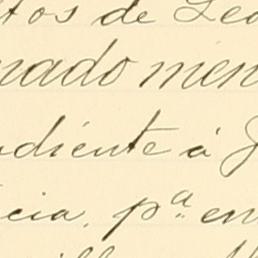 tos de Leo
nado men
ndiente á J
cia, pª en